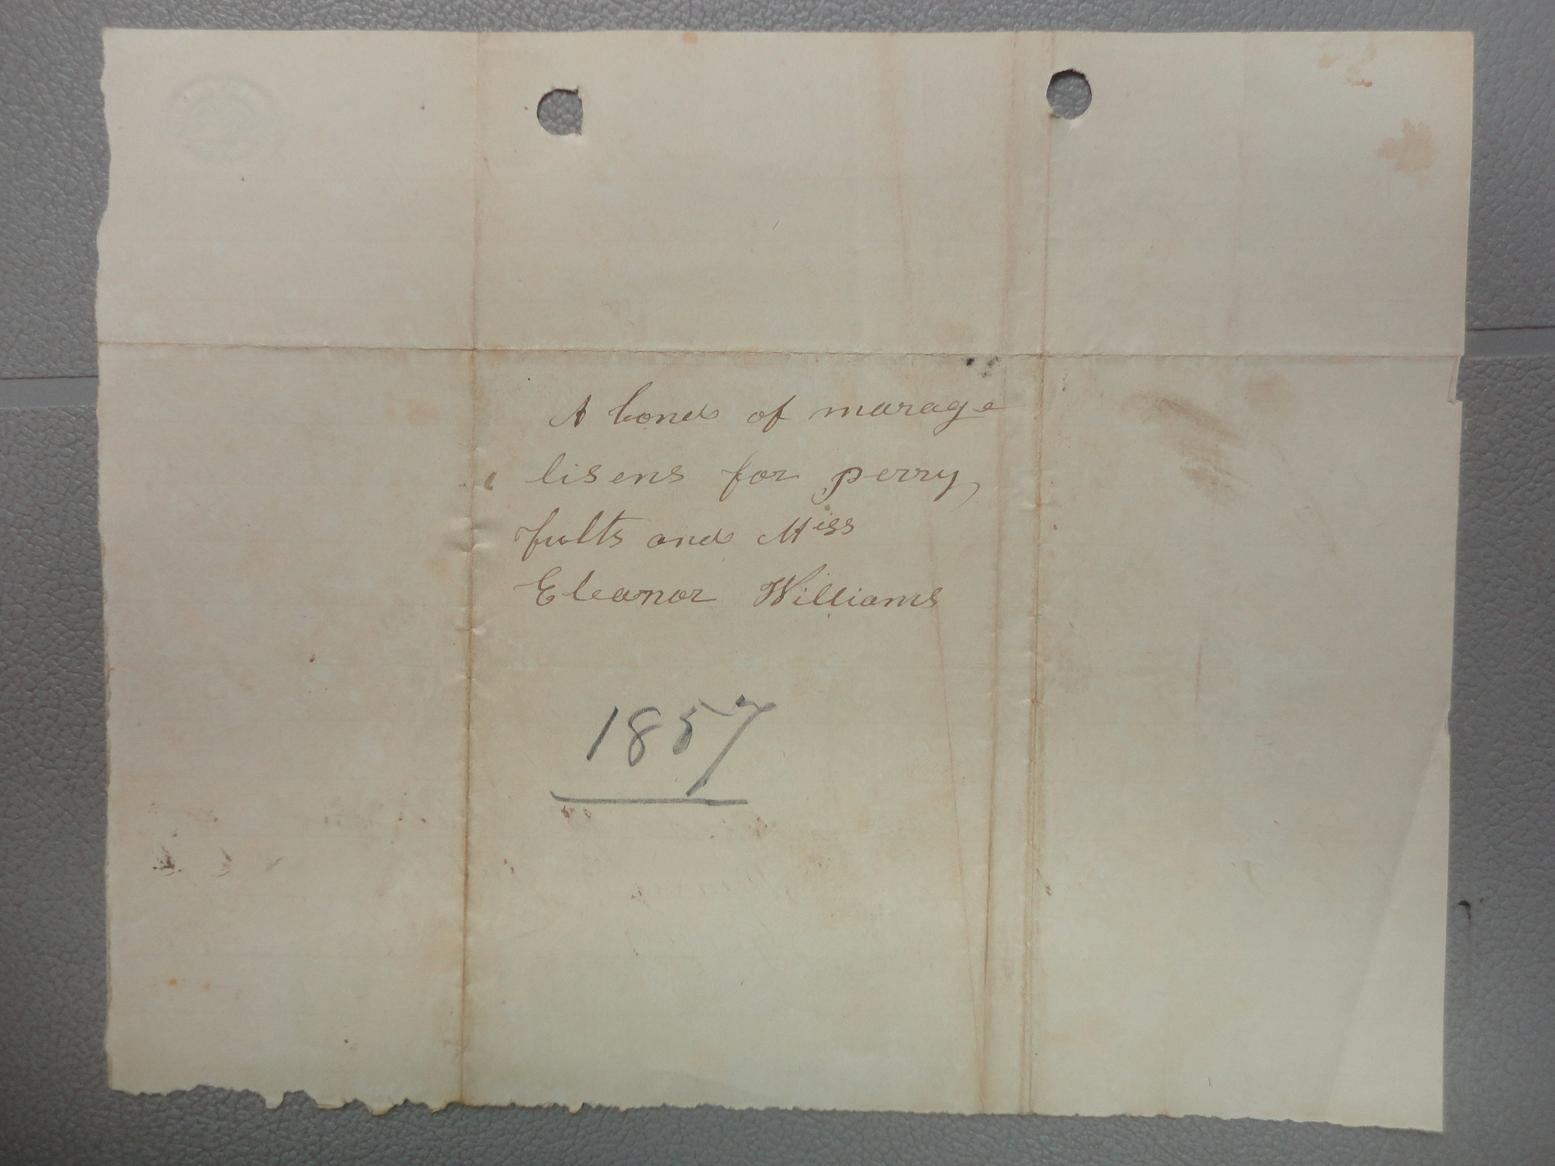 A bond of marage
lisens for perry,
fults and Miss
Eleanor Williams
1857